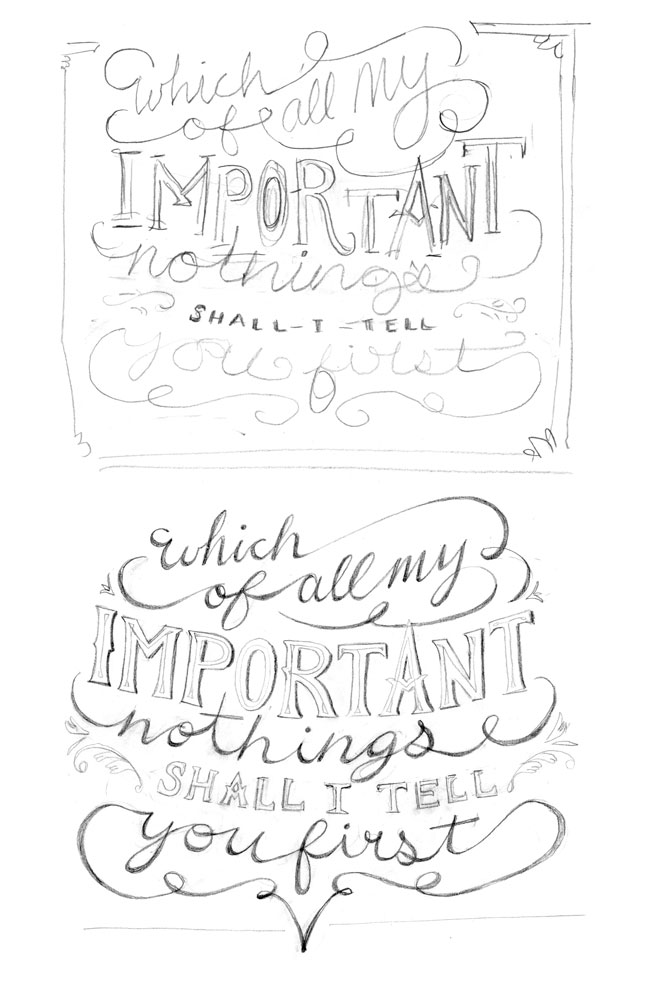 Which
of all my
IMPORTANT
nothings
SHALL-I-TELL
you first
Which
of all my
IMPORTANT
nothings
SHALL I TELL
you first